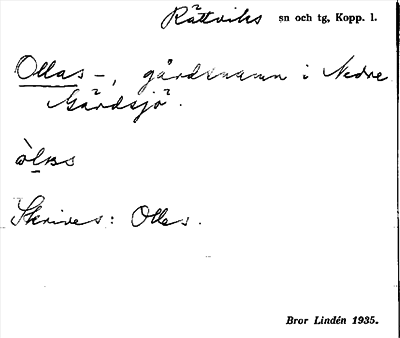 Rättviks sn och tg, Kopp. l.
Ollas -, gårdsnamn i Nedre
Gärdsjö.
Skrives: Olles.
Bror Lindén 1935.